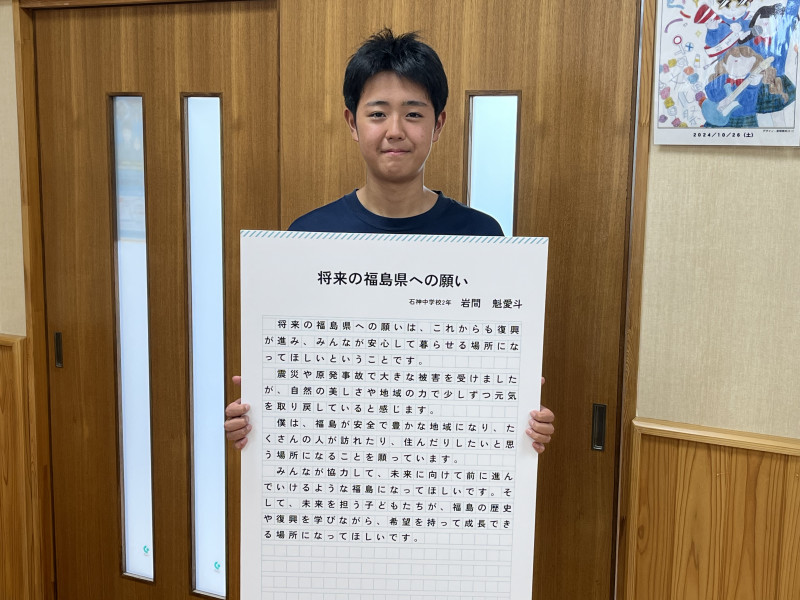 将来の福島県への願い
石神中学校2年 岩間 魁愛斗
将来の福島県への願いは、これからも復興
が進み、みんなが安心して暮らせる場所にな
ってほしいということです。
震災や原発事故で大きな被害を受けました
が、自然の美しさや地域の力で少しずつ元気
を取り戻していると感じます。
僕は、福島が安全で豊かな地域になり、た
くさんの人が訪れたり、住んだりしたいと思
う場所になることを願っています。
みんなが協力して、未来に向けて前に進ん
でいけるような福島になってほしいです。そ
して、未来を担う子どもたちが、福島の歴史
や復興を学びながら、希望を持って成長でき
る場所になってほしいです。
2024/10/26(土)